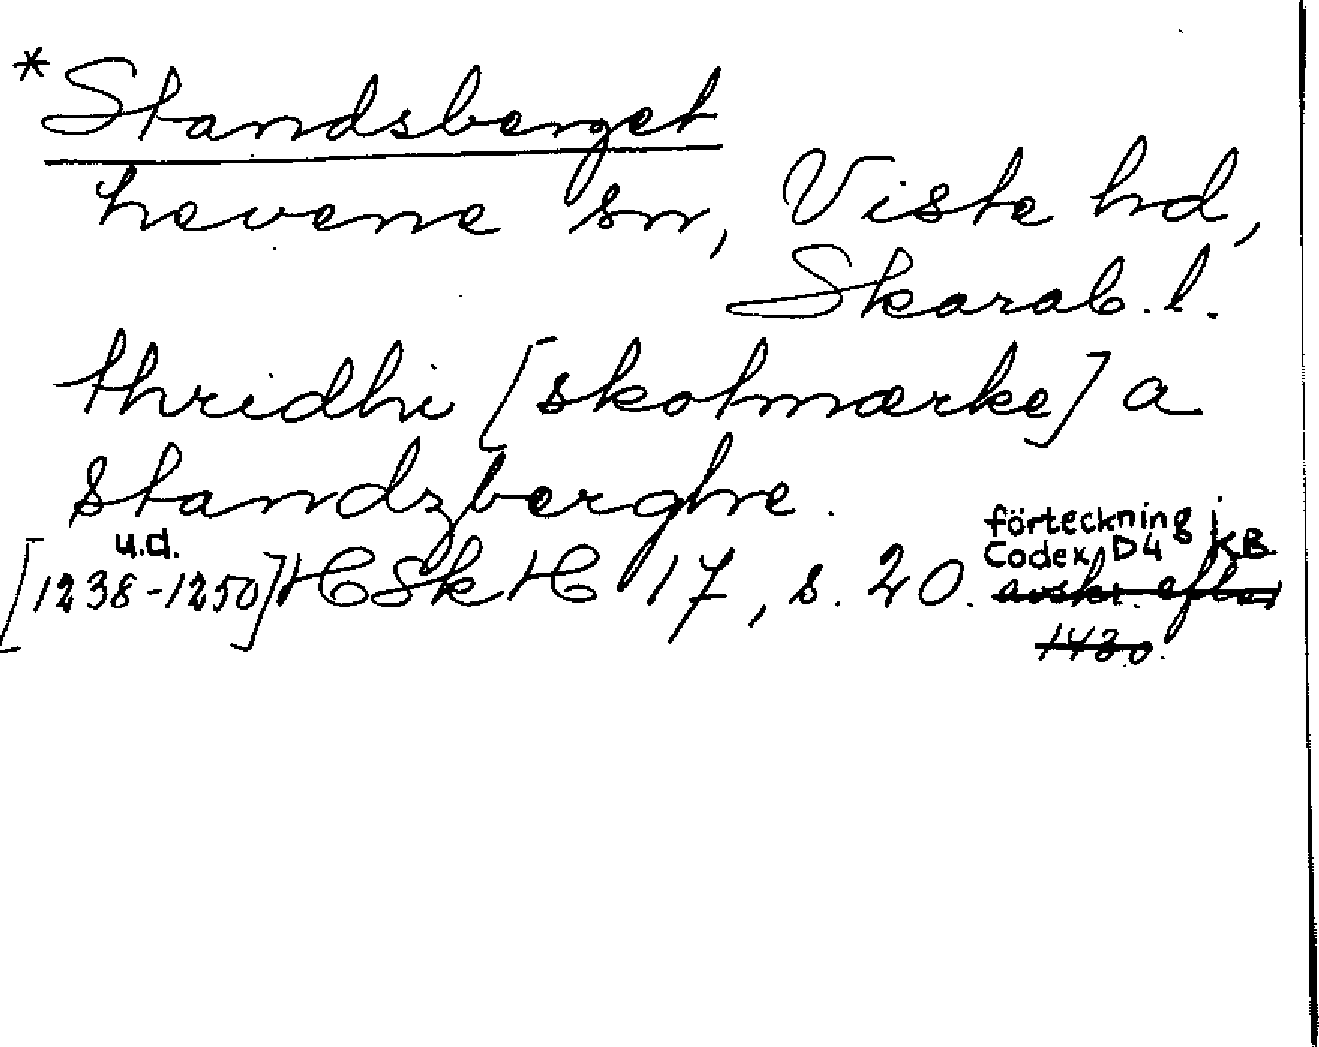 *Standsberget
hevene sn, Viste hd,
Skarab. l.
thridhi [skotmærke] a
standzberghe.
u.d.
[1238-1250] HSkH 17, s. 20.
förteckning i
Codex D4 KB
avskr. efter
1430.